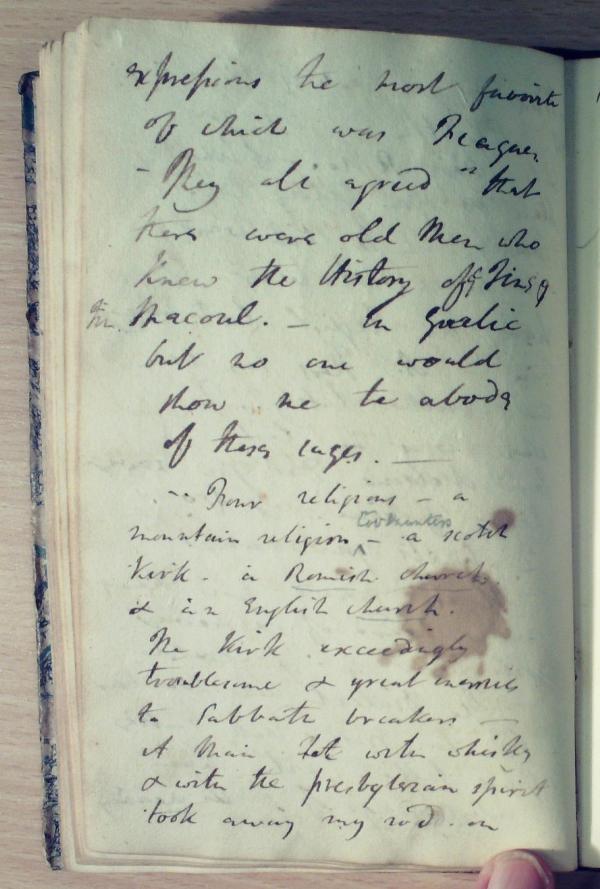 expressions the most favorite
of which was Teague,
- They all agreed "that
there were old Men who
knew the History of Fing
Macoul. - in Gaelic
but no one would
show me the abode
of these sages. —
Four religions - a
Covenanters
mountain religion - a scotch
Kirk. a Romish church.
& an English church.
The Kirk exceedingly
troublesome & great enemies
to Sabbath breakers -
A Man with whisky
& with the presbyterian spirit
took away my rod. on